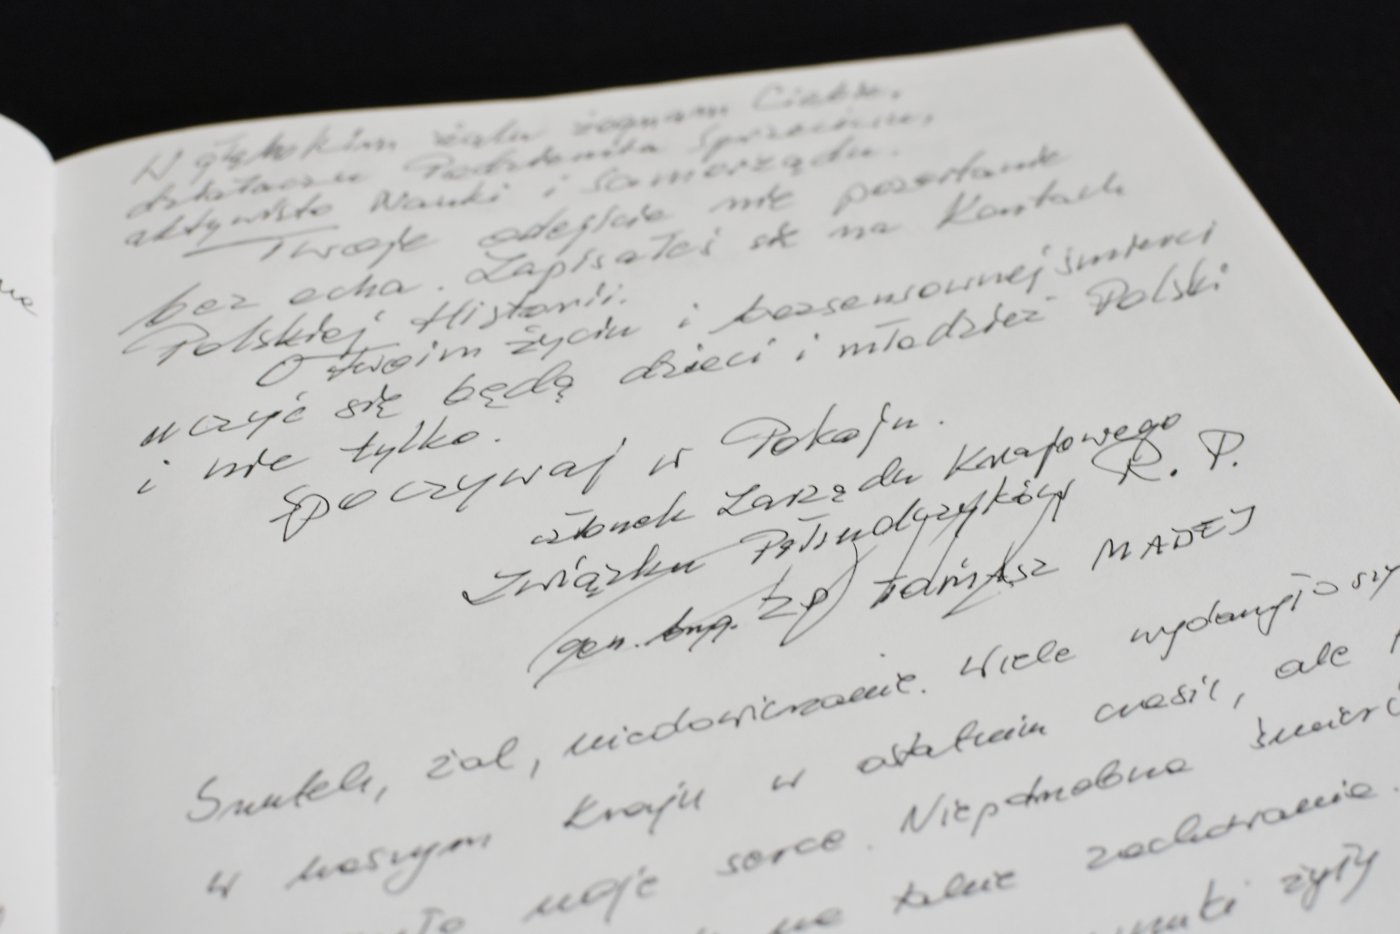 W głębokim żalu żegnam Ciebie,
działaczu Podziemia Sprzeciwu,
aktywisto Nauki i Samorządu.
Twoje odejście nie pozostanie
bez echa. Zapisałeś się na Kartach
Polskiej Historii.
O Twoim życiu i bezsensownej śmierci
uczyć się będą dzieci i młodzież Polski
i nie tylko.
Spoczywaj w Pokoju.
członek Zarządu Krajowego
Związku Piłsudczyków R.P.
gen. bryg. ZP Tomasz MADEJ
Smutek, żal, niedowierzanie. Wiele wydarzyło
w naszym kraju w ostatnim czasie, ale
moje serce. Niepotrzebna śmierć
na takie zachowania.
żyły